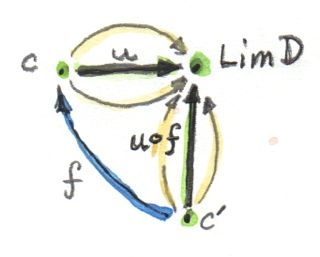 c
u
Lim D
u∘f
f
c'